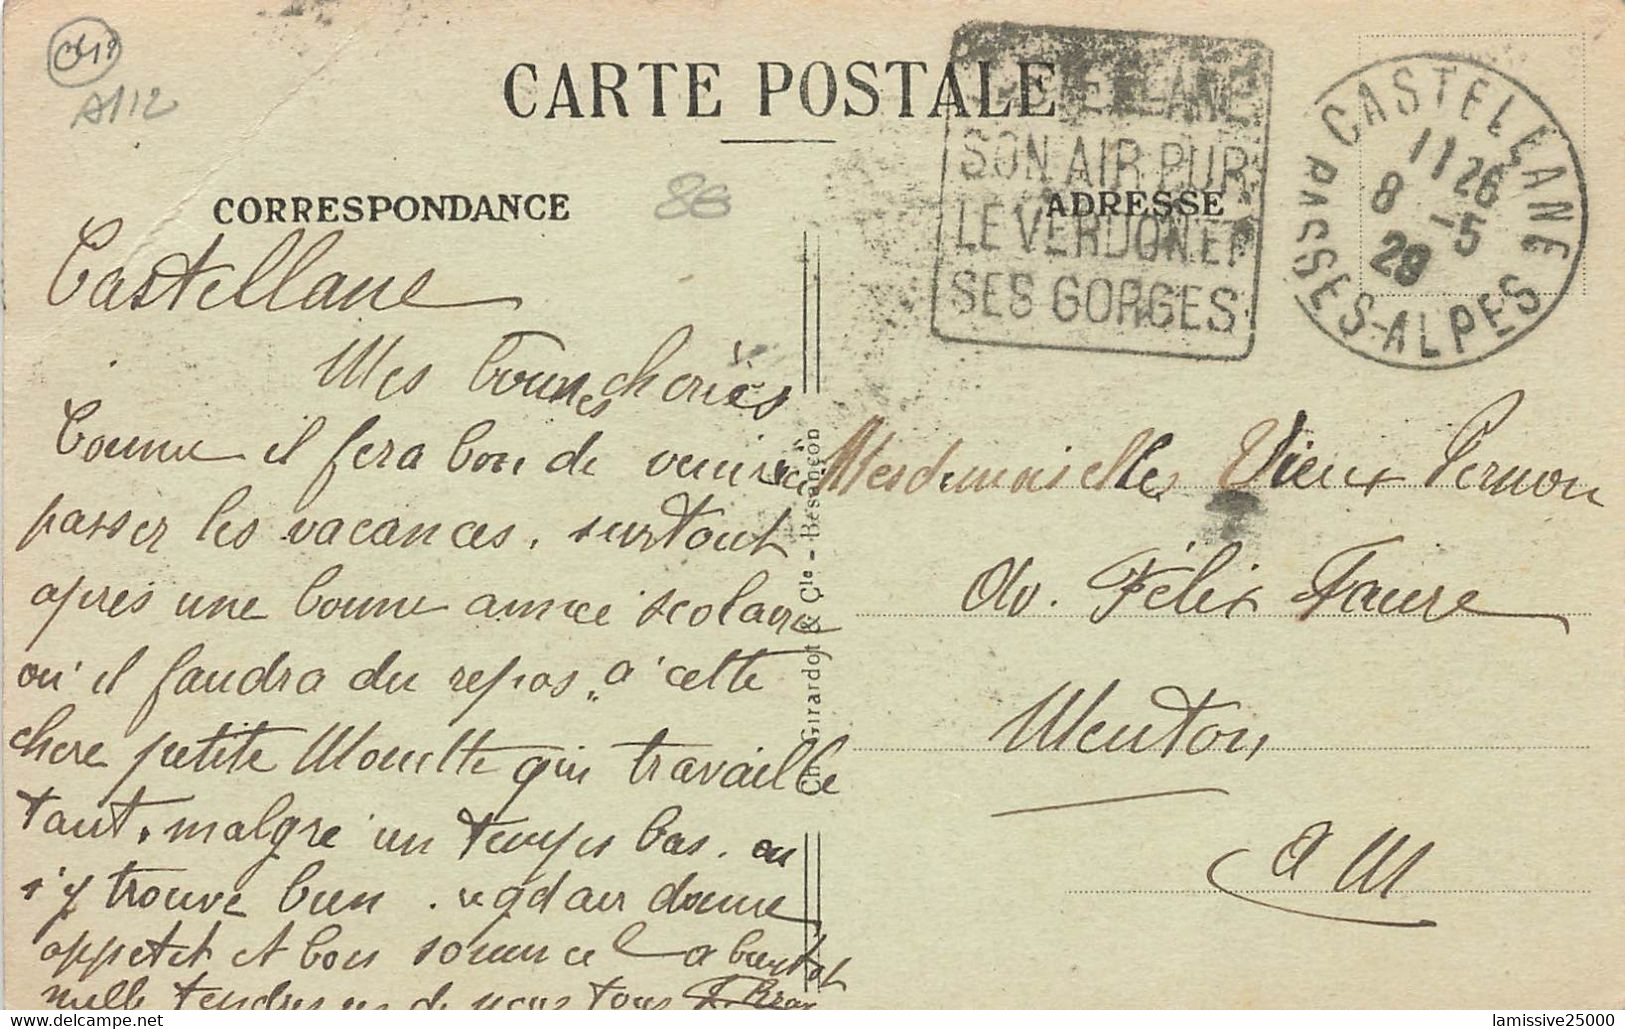 A112
CARTE POSTALE
CORRESPONDANCE
86
ADRESSE
CASTELLANE
SON AIR PUR
LE VERDON ET
SES GORGES
CASTELLANE
11 26
8 -5
29
BASSES-ALPES
Castellane
Mes bonnes cheries
Comme il fera bon de venir ici
passer les vacances, surtout
après une bonne année scolaire
où il faudra du repos, à cette
chere petite Mouette qui travaille
tant. malgré un temps bas. on
s'y trouve bien. air donne
appetit et bon sommeil a bientot
mille tendresses de nous tous
Ch. Girardot & Cie - Besançon
Mesdemoiselles Vieux Pernon
Av. Félix Faure
Menton
A M
lamissive25000